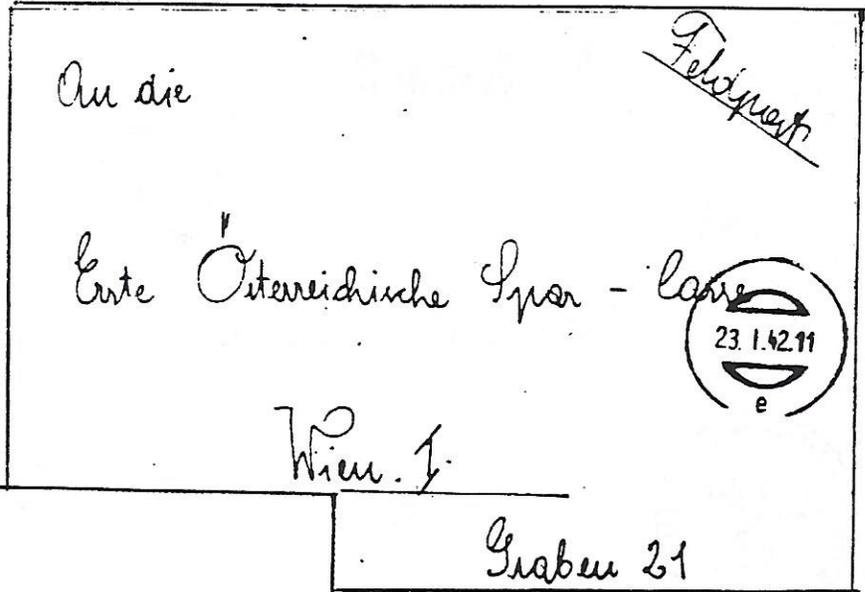 Feldpost
An die
Erste Österreichische Spar - Casse
23. I.42.11
e
Wien. I.
Graben 21